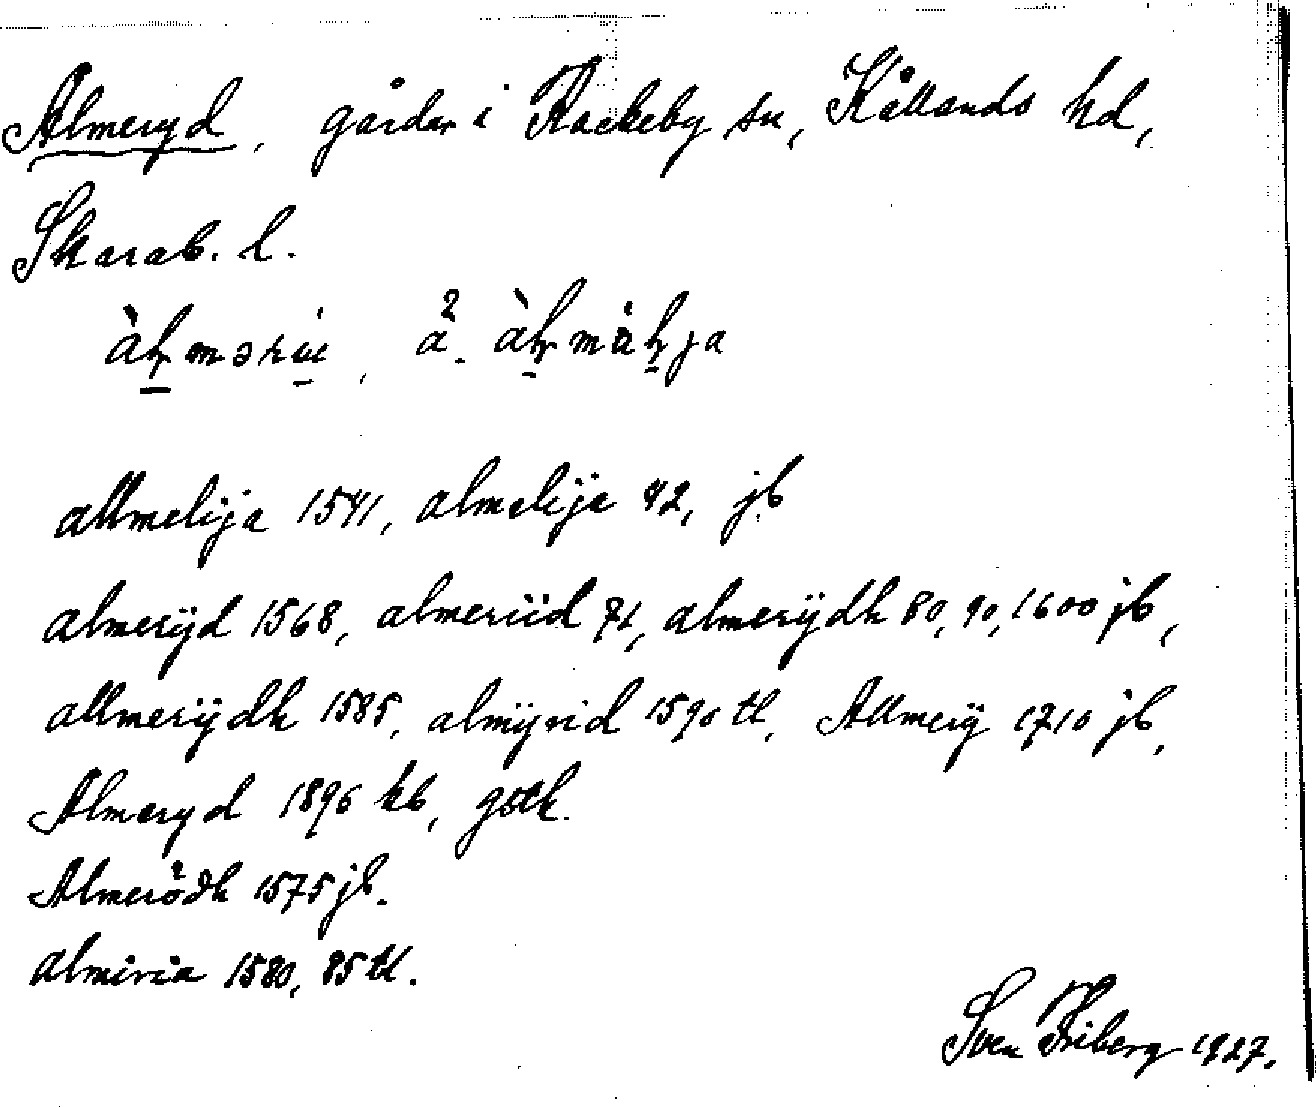 Almeryd, gårdar i Rackeby sn, Kållands hd,
Skarab. l.
allmelija 1541, almelije 42, jb
almerÿd 1568, almeriid 71, almerÿdh 80, 90, 1600 jb,
allmerÿdh 1585, almÿrid 1590 tl, Allmerÿ 1710 jb,
Almeryd 1896 kb, gsth.
Almerödh 1575 jb.
almiria 1580, 85 tl.
Sven Friberg 1927.